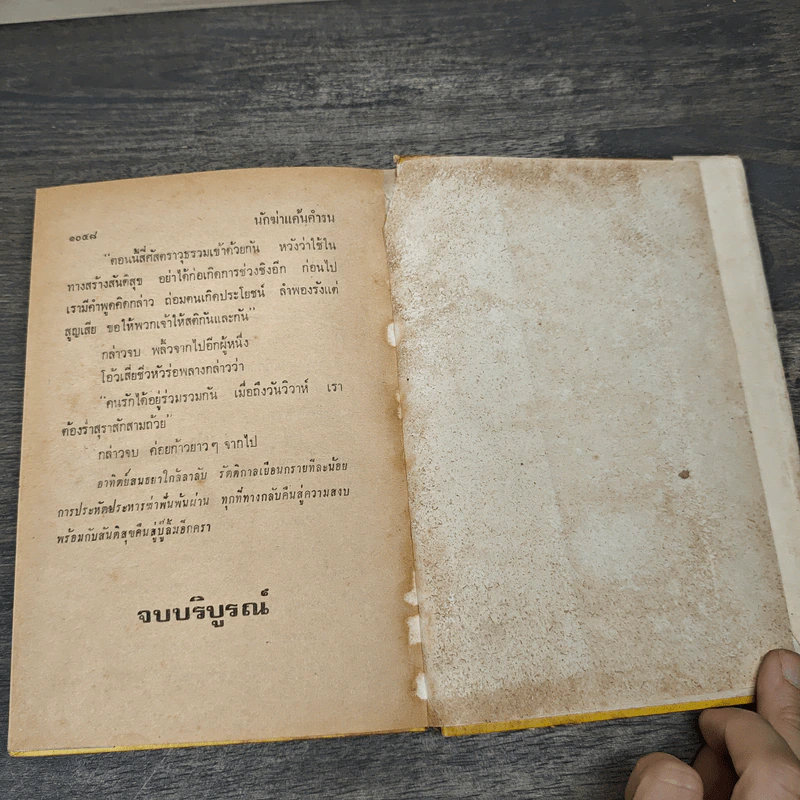 นักฆ่าแค้นคำรน
๑๐๕๘
"ตอนนี้สี่ศัสตราวุธรวมเข้าด้วยกัน หวังว่าใช้ใน
ทางสร้างสันติสุข อย่าได้ก่อเกิดการช่วงชิงอีก ก่อนไป
เรามีคำพูดคิดกล่าว ถ่อมตนเกิดประโยชน์ ลำพองรังแต่
สูญเสีย ขอให้พวกเจ้าให้สติกันและกัน"
กล่าวจบ พลิ้วจากไปอีกผู้หนึ่ง
โอ้วเสี่ยซิ่วหัวร่อพลางกล่าวว่า
"คนรักได้อยู่ร่วมรวมกัน เมื่อถึงวันวิวาห์ เรา
ต้องร่ำสุราสักสามถ้วย"
กล่าวจบ ค่อยก้าวยาวๆ จากไป
อาทิตย์สนธยาใกล้ลาลับ รัตติกาลเยือนกรายทีละน้อย
การประหัตประหารฆ่าฟันพ้นผ่าน ทุกที่ทางกลับคืนสู่ความสงบ
พร้อมกับสันติสุขคืนสู่บู๊ลิ้มอีกครา
จบบริบูรณ์